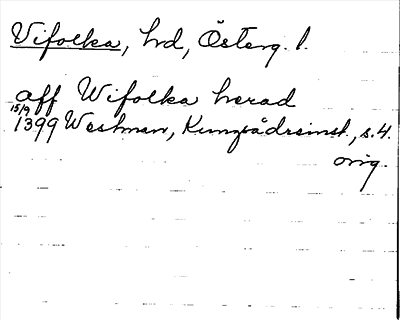 Vifolka, hrd, Österg. l.
aff Wifolka herad
15/9
1399 Westman, Kungsrådsinst., s. 4.
orig.